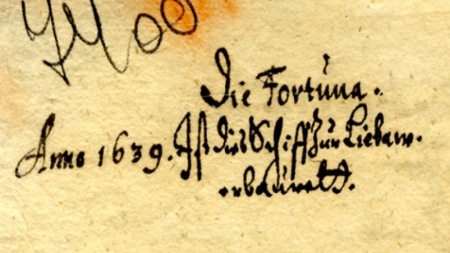 Die Fortuna.
Anno 1639. Ist dies Schiff zur Liebaw.
erbauwett.